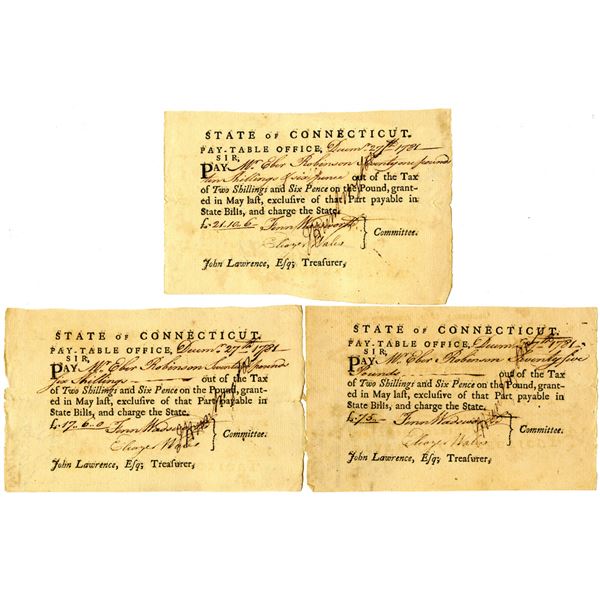 STATE OF CONNECTICUT.
PAY-TABLE OFFICE, Decemr. 27th 1781
SIR,
PAY Mr Eber Robinson Twenty one pound
ten Shillings & six pence out of the Tax
of Two Shillings and Six Pence on the Pound, grant-
ed in May last, exclusive of that Part payable in
State Bills, and charge the State.
£21.10.6 Fenn Wadsworth
Eleazr Wales } Committee.
John Lawrence, Esq; Treasurer,
STATE OF CONNECTICUT.
PAY-TABLE OFFICE, Decemr. 27th 1781
SIR,
PAY Mr Eber Robinson pound
six Shillings out of the Tax
of Two Shillings and Six Pence on the Pound, grant-
ed in May last, exclusive of that Part payable in
State Bills, and charge the State.
£17.6.0 Fenn Wadsworth
Eleazr Wales } Committee.
John Lawrence, Esq; Treasurer,
STATE OF CONNECTICUT.
PAY-TABLE OFFICE, Decemr. 27th 1781
SIR,
PAY Mr Eber Robinson Seventy five
Pounds out of the Tax
of Two Shillings and Six Pence on the Pound, grant-
ed in May last, exclusive of that Part payable in
State Bills, and charge the State.
£75 Fenn Wadsworth
Eleazr Wales } Committee.
John Lawrence, Esq; Treasurer,